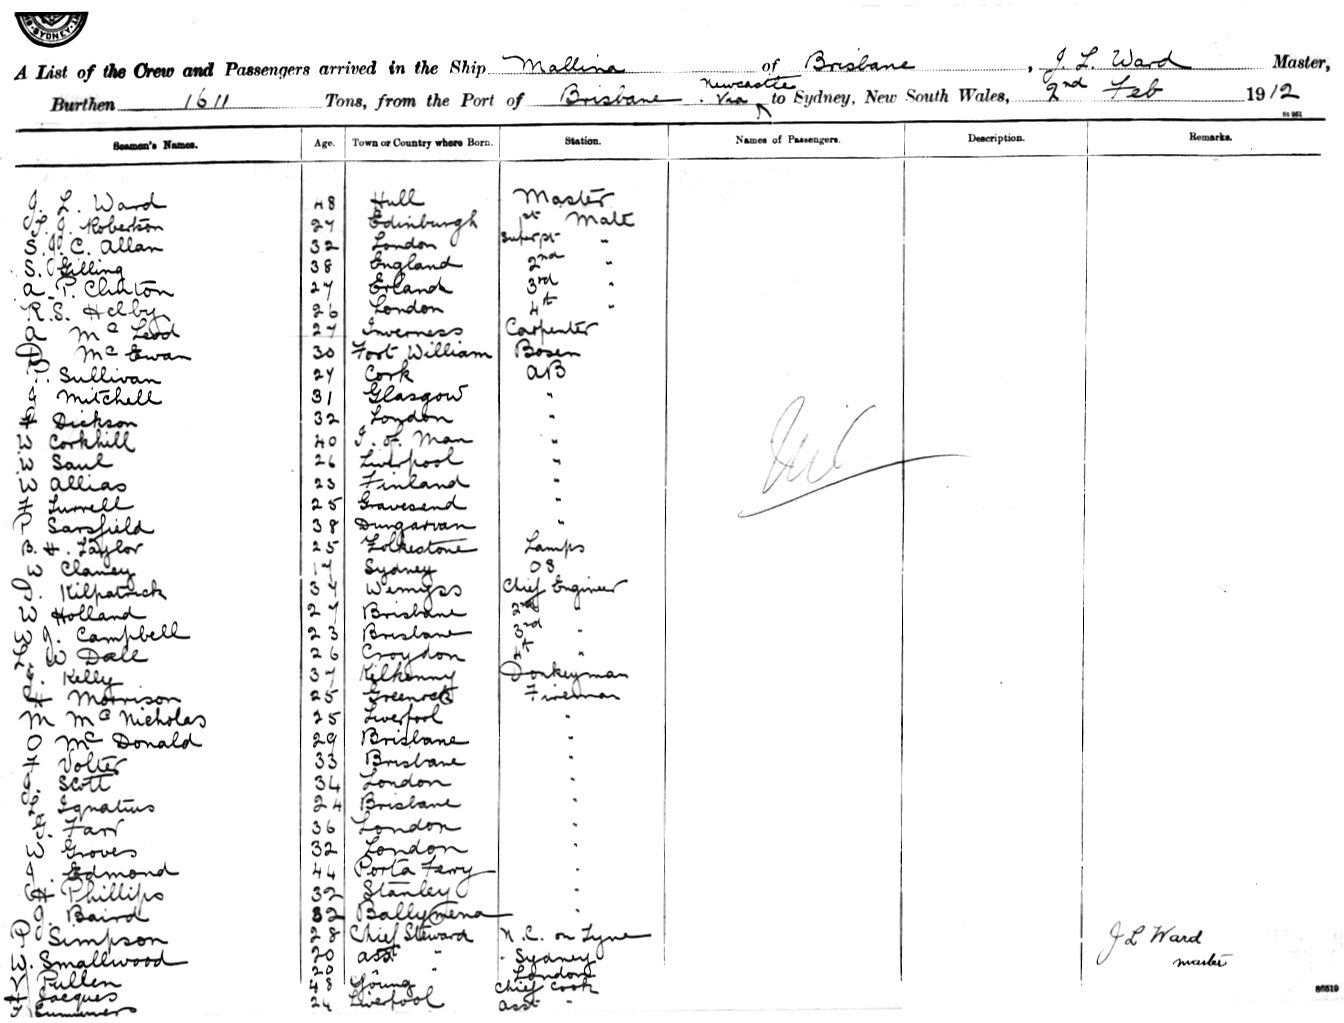 SYDNEY
A List of the Crew and Passengers arrived in the Ship Mallina of Brisbane, J. L. Ward Master,
Newcastle
Burthen 1611 Tons, from the Port of Brisbane. Via to Sydney, New South Wales, 2nd Feb 1912
Seamen's Names. Age. Town or Country where Born. Station. Names of Passengers. Description. Remarks.
J. L. Ward 48 Hull Master
J. Robertson 27 Edinburgh 1st Mate
S. J. C. Allan 32 London Superpt "
S. Gilling 38 England 2nd "
A. P. Clinton 27 3rd "
R. S. Helby 26 London 4th "
A Mc Leod 27 Inverness Carpenter
D Mc Ewan 30 Fort William Bosen
P. Sullivan 27 Cork AB
J Mitchell 31 Glasgow "
Dickson 32 London "
W Corkhill 40 I. of. Man "
W Saul 26 Liverpool "
W Allias 23 Finland "
F Lurrell 25 Gravesend "
P Sarsfield 38 Dungarvan "
B. H. Taylor 25 Folkestone Lamps
W Clancy 17 Sydney OS
J. Kilpatrick 37 Wemyss Chief Engineer
W Holland 27 Brisbane 2nd "
J. Campbell 23 Brisbane 3rd "
W Dall 26 Croydon 4th "
J. Kelly 37 Kilkenny Donkeyman
H Morrison 25 Greenock Fireman
M Mc Nicholas 25 Liverpool "
O Mc Donald 29 Brisbane "
H Volter 33 Brisbane "
J. Scott 34 London "
Ignatius 24 Brisbane "
J. Farr 36 London "
W Groves 32 London "
J. Edmond 44 Porta Ferry "
H Phillips 32 Stanley "
J. Baird 32 Ballymena "
P Simpson 28 Chief Steward N.C. on Tyne
W. Smallwood 20 asst " Sydney
V Pullen 20 " " London
H Jacques 48 Young Chief Cook
24 Liverpool asst "
Nil
J L Ward
master
86519